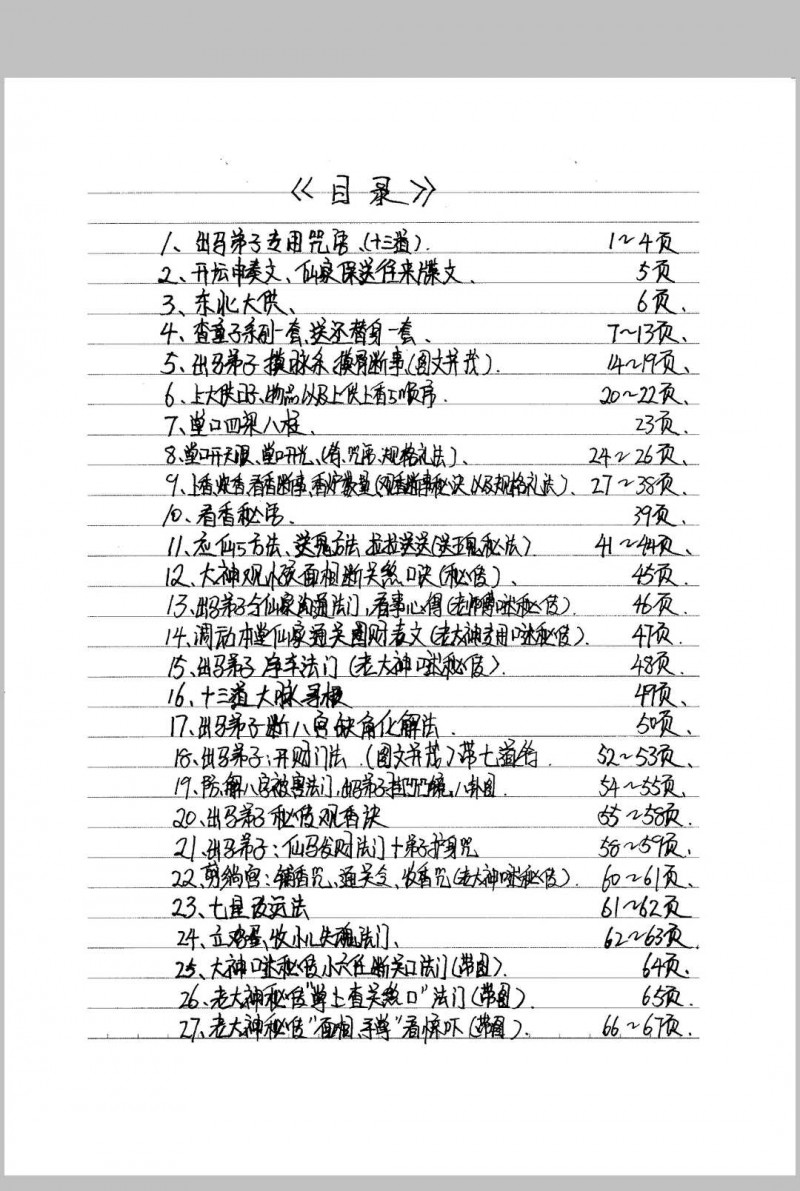 《目录》
1、出马弟子专用咒语、(十三道). 1~4页
2、开坛申奏文、仙家保送往来牒文. 5页
3、东北大供、 6页、
4、查童子系列一套、送还替身一套、 7~13页、
5、出马弟子摸脉系、摸骨断事(图文并茂). 14~19页、
6、上大供日子、物品以及上供上香顺序. 20~22页、
7、堂口四梁八柱、 23页、
8、堂口开天眼、堂口开光、(符、咒语、规格礼法)、 24~26页、
9、上香烧香、看香断事、香炉数量(观香断事秘诀以及规格礼法)、27~38页、
10、看香秘语. 39页、
11、应仙方法、送鬼方法、拉拉送送(送鬼秘法) 41~44页、
12、大神观小孩面相断关煞口诀(秘传)、 45页、
13、出马弟子令仙家沟通法门,看事心得(老师傅口述秘传). 46页、
14、调动本堂仙家通关图财表文(老大神专用口述秘传). 47页、
15、出马弟子净车法门(老大神口述秘传). 48页、
16、十三道大脉寻根 49页、
17、出马弟子断八宫缺角化解法. 50页、
18、出马弟子:开财门法.(图文并茂)带七道符. 52~53页、
19、防解八字被害法门,出马弟子挂凹凸镜,八卦图. 54~55页、
20、出马弟子秘传观香诀 55~58页、
21、出马弟子:仙马发财法门+弟子护身咒 58~59页、
22、剪绡宫:铺香咒、通关令、收香咒(老大神口述秘传). 60~61页、
23、七星改运法 61~62页
24、立鸡蛋,收小儿失魂法门、 62~63页、
25、大神口述秘传小六任断关口法门(带图). 64页、
26、老大神秘传"掌上查关煞口"法门(带图). 65页、
27、老大神秘传"面相、手掌"看惊吓(带图). 66~67页、